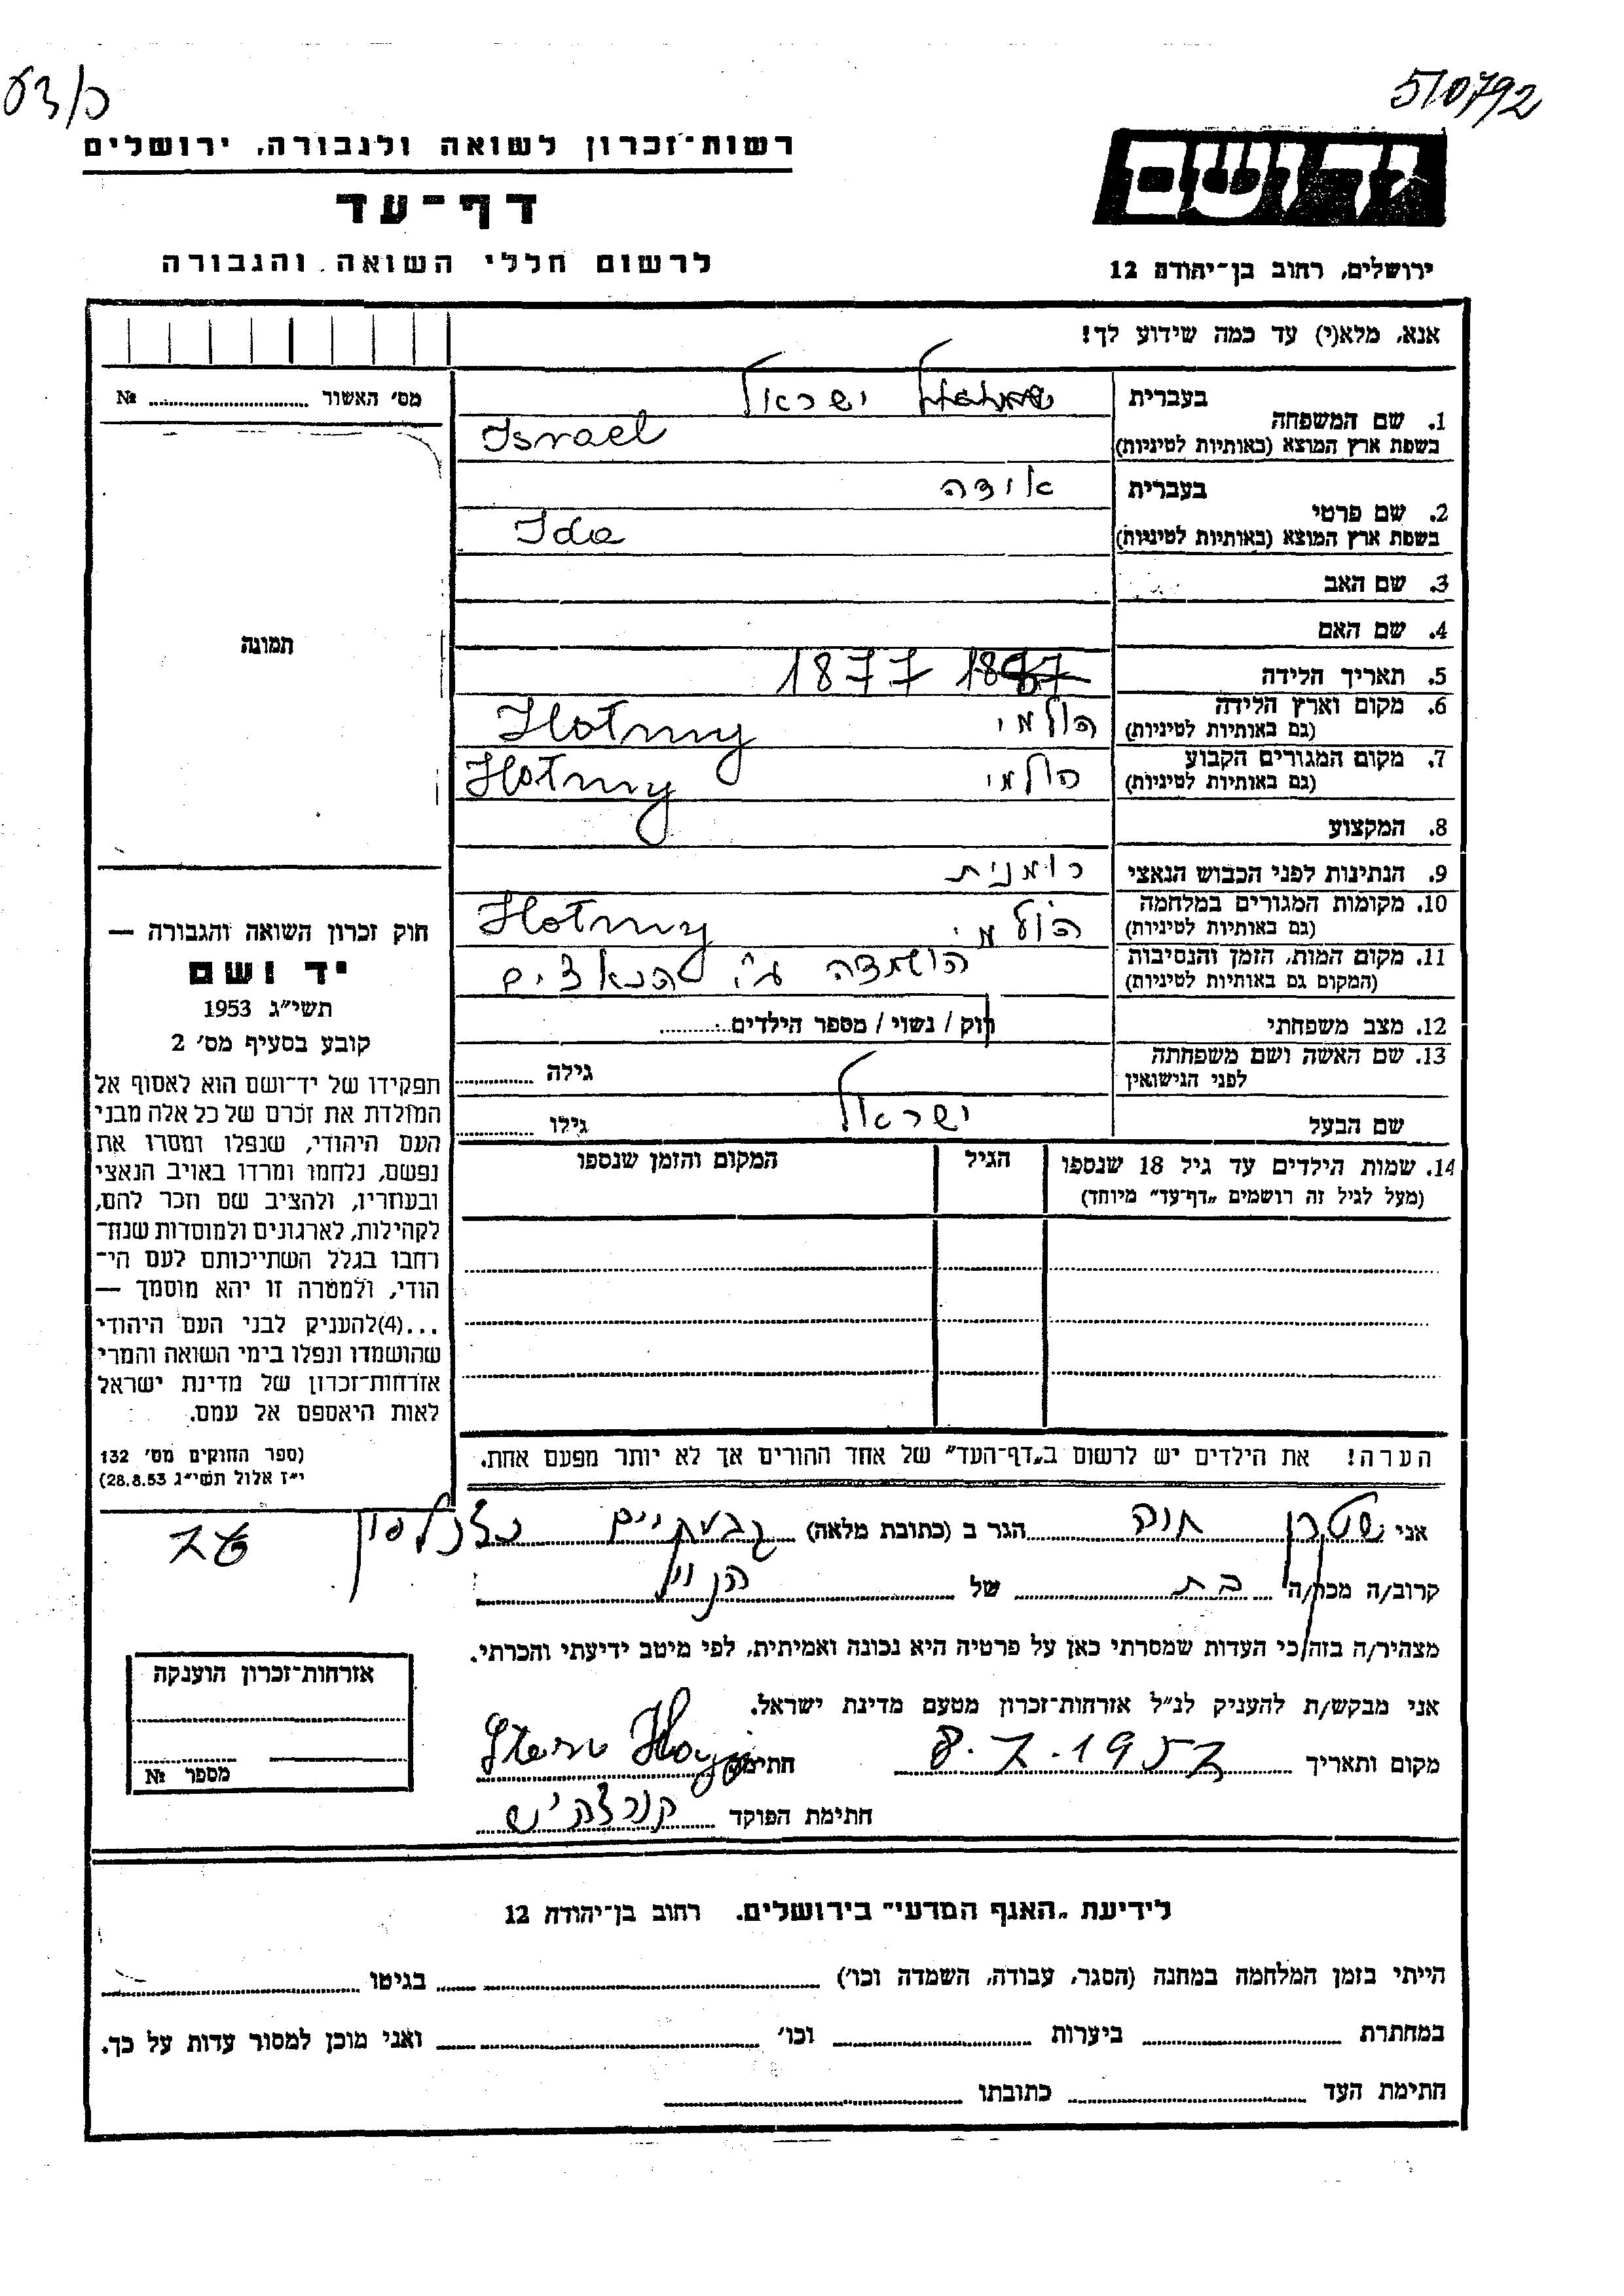 510792
רשות־זכרון לשואה ולגבורה, ירושלים
יד ושם
דף־עד
לרשום חללי השואה והגבורה
ירושלים, רחוב בן־יהודה 12
אנא, מלא(י) עד כמה שידוע לך!
מס׳ האשור ........ №
תמונה
בעברית ישראל
1. שם המשפחה
בשפת ארץ המוצא (באותיות לטיניות) Israel
בעברית אידה
2. שם פרטי
בשפת ארץ המוצא (באותיות לטיניות) Ida
3. שם האב
4. שם האם
5. תאריך הלידה 1877
6. מקום וארץ הלידה
(גם באותיות לטיניות) הולמי Hotmy
7. מקום המגורים הקבוע
(גם באותיות לטיניות) הולמי Hotmy
8. המקצוע
9. הנתינות לפני הכבוש הנאצי רומנית
10. מקומות המגורים במלחמה
(גם באותיות לטיניות) הולמי Hotmy
11. מקום המות, הזמן והנסיבות
(המקום גם באותיות לטיניות) הושמדה ע״י הנאצים
12. מצב משפחתי רוק / נשוי / מספר הילדים ........
13. שם האשה ושם משפחתה
לפני הנישואין גילה ........
שם הבעל ישראל גילו ........
14. שמות הילדים עד גיל 18 שנספו הגיל המקום והזמן שנספו
(מעל לגיל זה רושמים „דף־עד״ מיוחד)
הערה! את הילדים יש לרשום ב„דף־העד״ של אחד ההורים אך לא יותר מפעם אחת.
חוק זכרון השואה והגבורה —
יד ושם
תשי״ג 1953
קובע בסעיף מס׳ 2
תפקידו של יד־ושם הוא לאסוף אל
המולדת את זכרם של כל אלה מבני
העם היהודי, שנפלו ומסרו את
נפשם, נלחמו ומרדו באויב הנאצי
ובעוזריו, ולהציב שם וזכר להם,
לקהילות, לארגונים ולמוסדות שנח־
רבו בגלל השתייכותם לעם הי־
הודי, ולמטרה זו יהא מוסמך —
...(4)להעניק לבני העם היהודי
שהושמדו ונפלו בימי השואה והמרי
אזרחות־זכרון של מדינת ישראל
לאות היאספם אל עמם.
(ספר החוקים מס׳ 132
י״ז אלול תשי״ג 28.8.53)
אני שטרן חיה הגר ב (כתובת מלאה) גבעתיים כצנלסון
קרוב/ה מכר/ה בת של הנ״ל
מצהיר/ה בזה כי העדות שמסרתי כאן על פרטיה היא נכונה ואמיתית, לפי מיטב ידיעתי והכרתי.
אני מבקש/ת להעניק לנ״ל אזרחות־זכרון מטעם מדינת ישראל.
מקום ותאריך 8.7.1957 חתימה Stern Haya
חתימת הפוקד
אזרחות־זכרון הוענקה
מספר №
לידיעת „האגף המדעי״ בירושלים, רחוב בן־יהודה 12
הייתי בזמן המלחמה במחנה (הסגר, עבודה, השמדה וכו׳) ........ בגיטו ........
במחתרת ........ ביערות ........ וכו׳ ........ ואני מוכן למסור עדות על כך.
חתימת העד ........ כתובתו ........